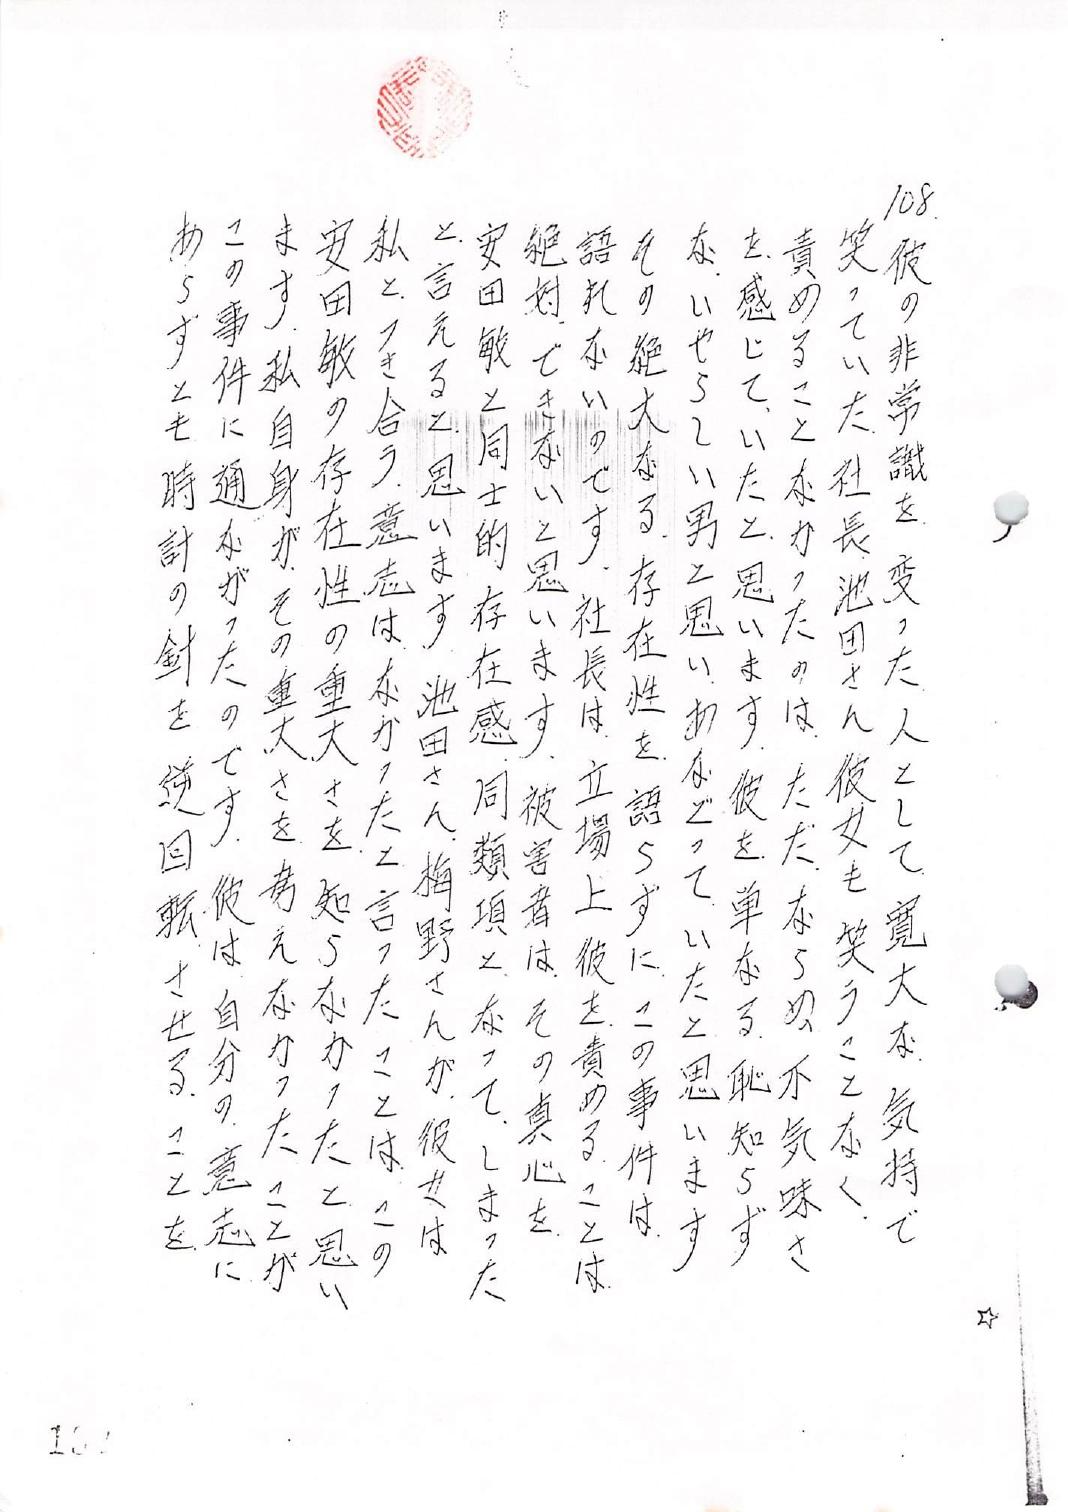 108.
彼の非常識を、変った、人として、寛大な、気持で
笑っていた、社長、池田さん、彼女も、笑うことなく、
責めることなかったのは、ただ、ならぬ、不気味さ
を、感じて、いたと、思います、彼を、単なる、恥知らず
な、いやらしい男と思い、あなどって、いたと思います
その絶大なる、存在性を、語らずに、この事件は、
語れないのです、社長は、立場上、彼を、責めることは、
絶対、できないと思います、被害者は、その真心を、
安田敏と同士的、存在感、同類項と、なって、しまった
と、言えると、思います、池田さん、梅野さんが、彼女は
私と、つき合う、意志は、なかったと、言った、ことは、この
安田敏の存在性の重大さを、知らなかったと、思い
ます、私自身が、その重大さを、考えなかったことが
この事件に、通ながったのです、彼は、自分の、意志に
あらずとも、時計の針を、逆回転、させる、ことを、
☆